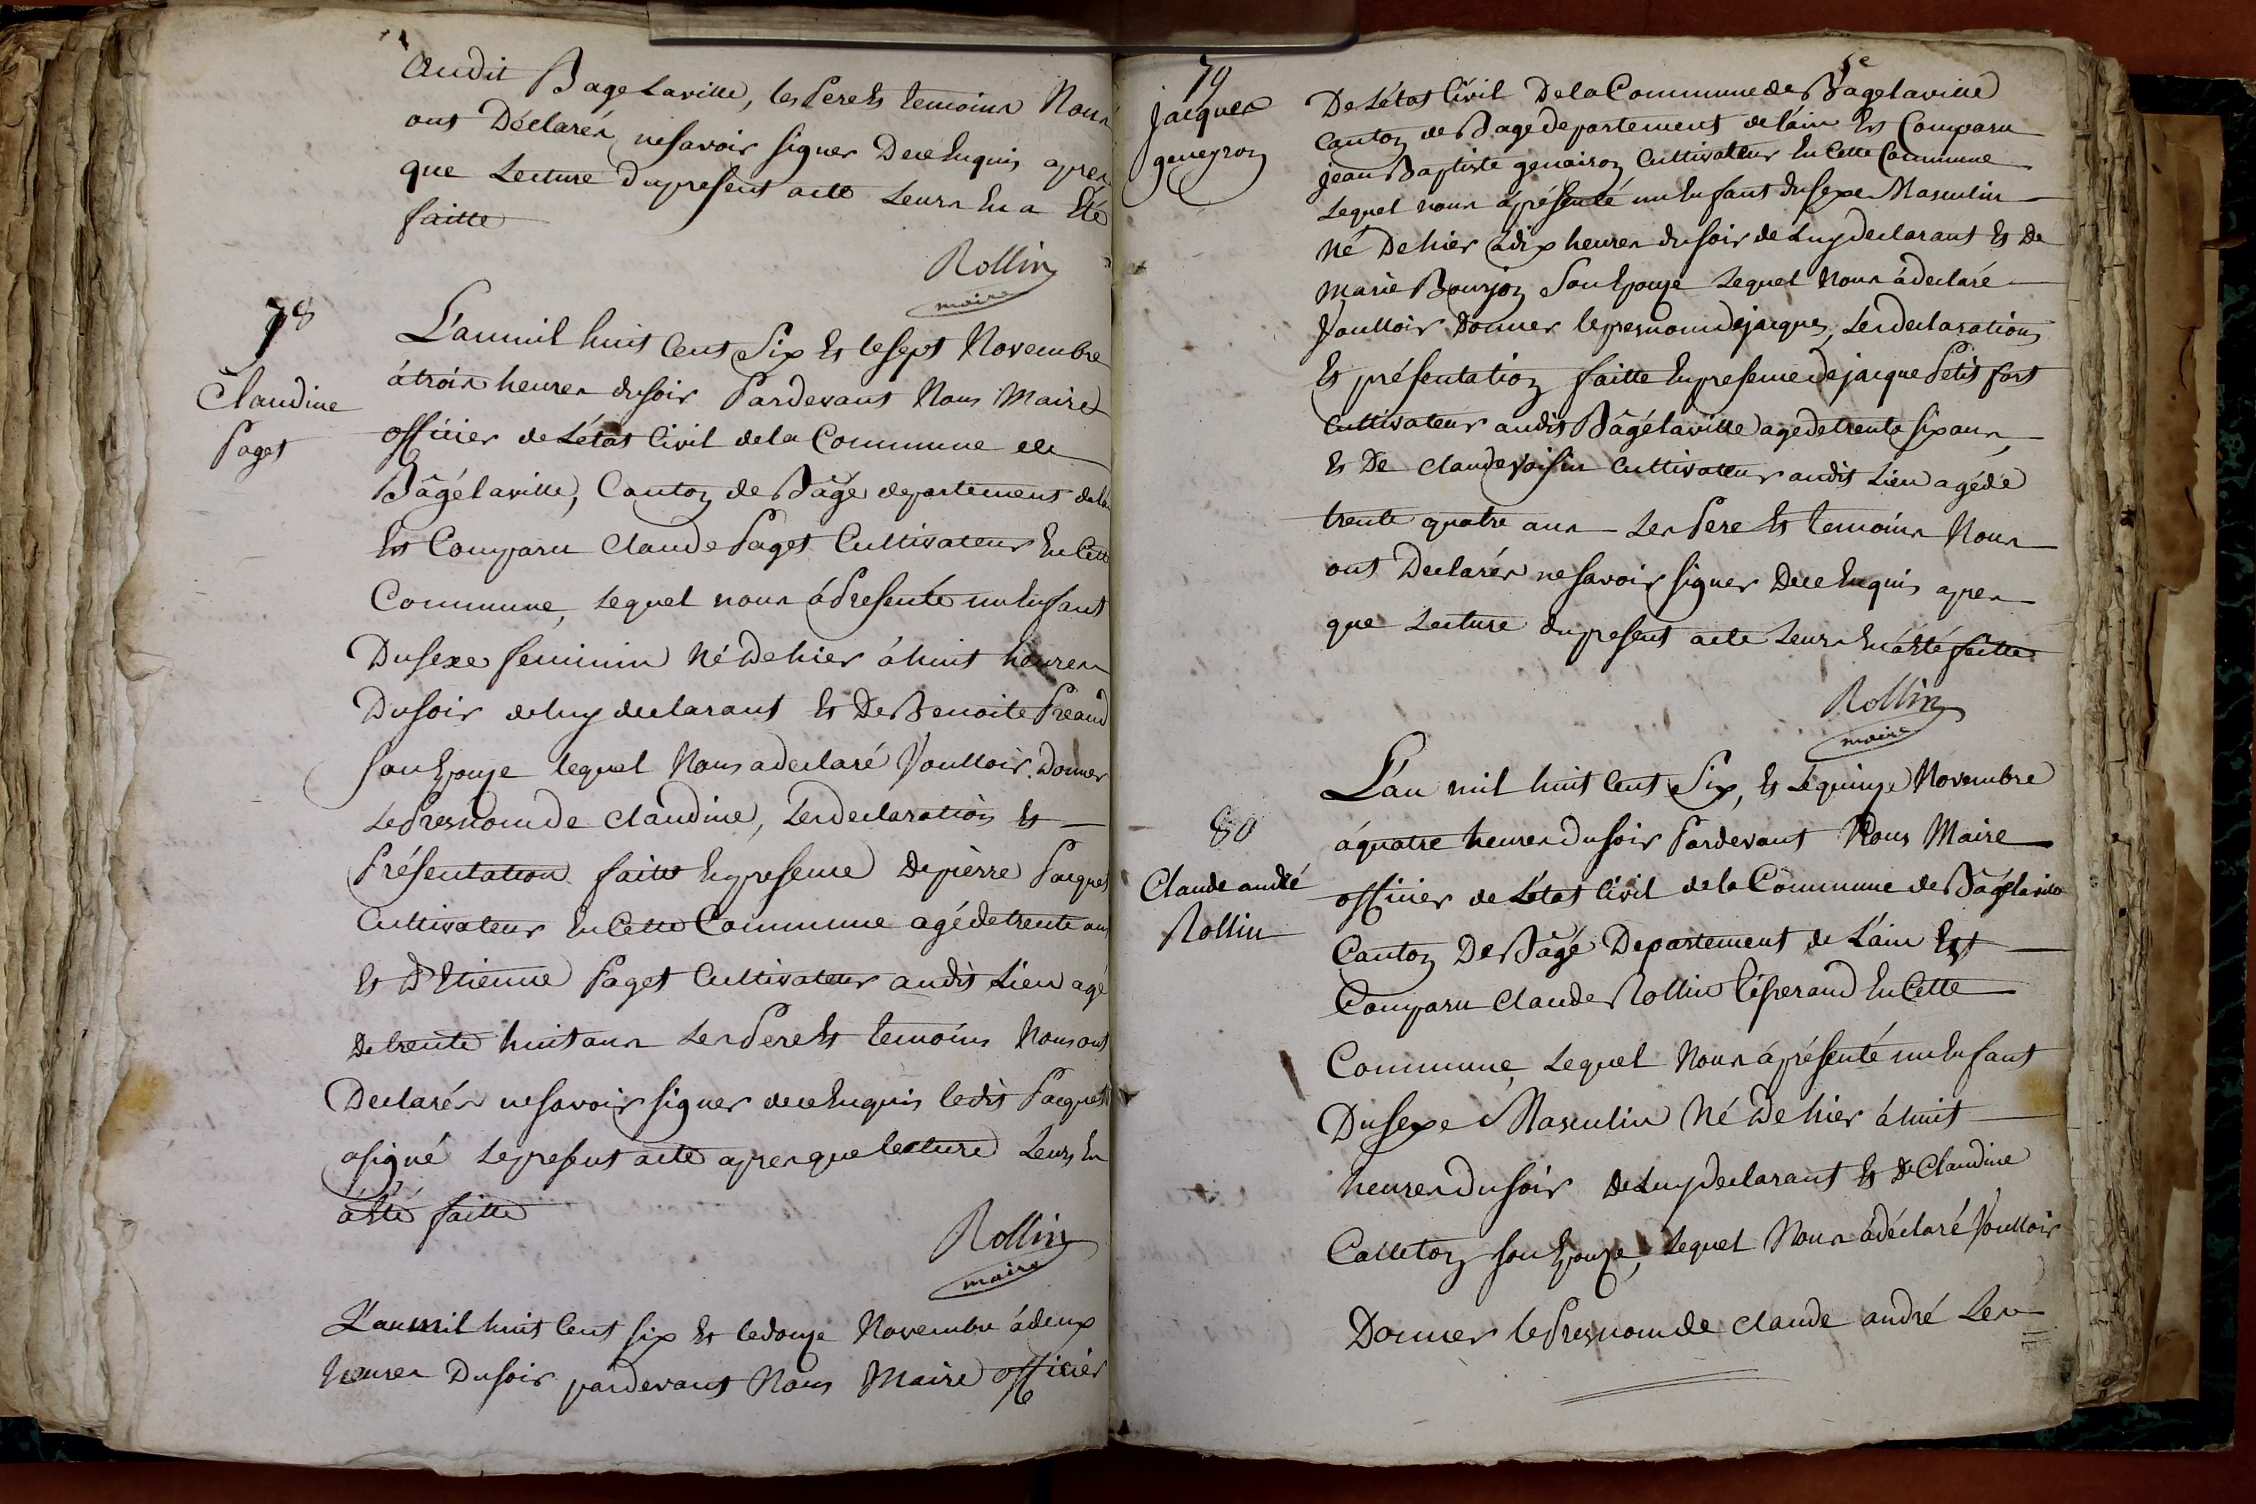 audit Bage Laville, les Pere Et temoins Nous
ont Déclarés ne savoir signer De ce Enquis apres
que Lecture du present acte Leurs En a Eté
faitte
Rollin
maire
78
Claudine
Paget
L'an mil huit Cent Six Et le sept Novembre
á trois heures du soir Pardevant Nous Maire
officier de L'état Civil de la Commune de
Bâgé laville, Canton de Bâgé departement de l'ain
Est Comparu Claude Paget Cultivateur En Cette
Commune, Lequel nous á Presenté un Enfant
Du sexe feminin Né De hier á huit heures
Du soir de luy declarant Et De Benoite Preaud
son Epouze lequel Nous a declaré Voulloir Donner
Le Presnom de Claudine, Les declaration Et
Présentation faitte En presence De pierre Pacquet
Cultivateur En Cette Commune agé de trente ans
Et D'Etienne Paget Cultivateur audit Lieu agé
De trente huit ans Les Pere Et temoins Nous ont
Declarés ne savoir signer de ce Enquis ledit Pacquet
a signé Le present acte apres que lecture Leurs En
á Eté faitte
Rollin
maire
L'an mil huit Cent six Et le douze Novembre á deux
heures Du soir pardevant Nous Maire officier
79
Jacques
geneyron
De L'état Civil De la Commune de Bagé laville
Canton de Bagé departement de l'ain Est Comparu
jean Baptiste genairon Cultivateur En Cette Commune
Lequel nous á présenté un Enfant du sexe Masculin
Né De hier á dix heures du soir de Luy declarant Et De
Marie Bourjon Son Epouze Lequel Nous á declaré
Voulloir Donner le presnom de jacques, Les declaration
Et présentation faitte En presence de jacque Petit fort
Cultivateur audit Bâgé laville agé de trente six ans
Et De Claude Voisin Cultivateur audit Lieu agé de
trente quatre ans Les Pere Et temoins Nous
ont Declarés ne savoir signer De ce Enquis apres
que Lecture du present acte Leurs En á Eté faitte
Rollin
maire
80
Claude andré
Rollin
L'an mil huit Cent Six, Et Le quinze Novembre
á quatre heures Du soir Pardevant Nous Maire
officier de L'état Civil de la Commune de Bâgé laville
Canton De Bâgé Departement de L'ain Est
Comparu Claude Rollin En Cette
Commune, Lequel Nous á présenté un Enfant
Du sexe Masculin Né De hier á huit
heures Du soir De Luy Declarant Et De Claudine
Calleton son Epouze, Lequel Nous á déclaré Voulloir
Donner le Presnom de Claude andré Les